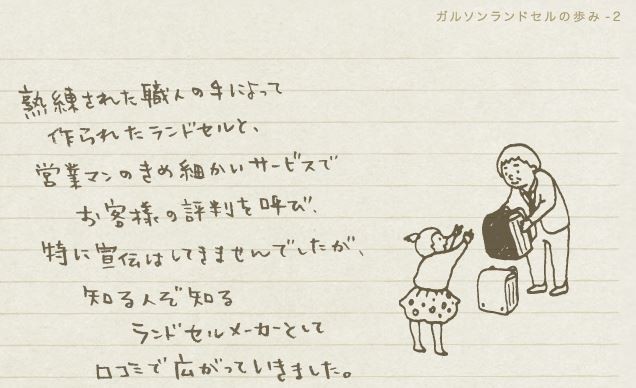 ガルソンランドセルの歩み -2
熟練された職人の手によって
作られたランドセルと、
営業マンのきめ細かいサービスで
お客様の評判を呼び、
特に宣伝はしてきませんでしたが、
知る人ぞ知る
ランドセルメーカーとして
口コミで広がっていきました。